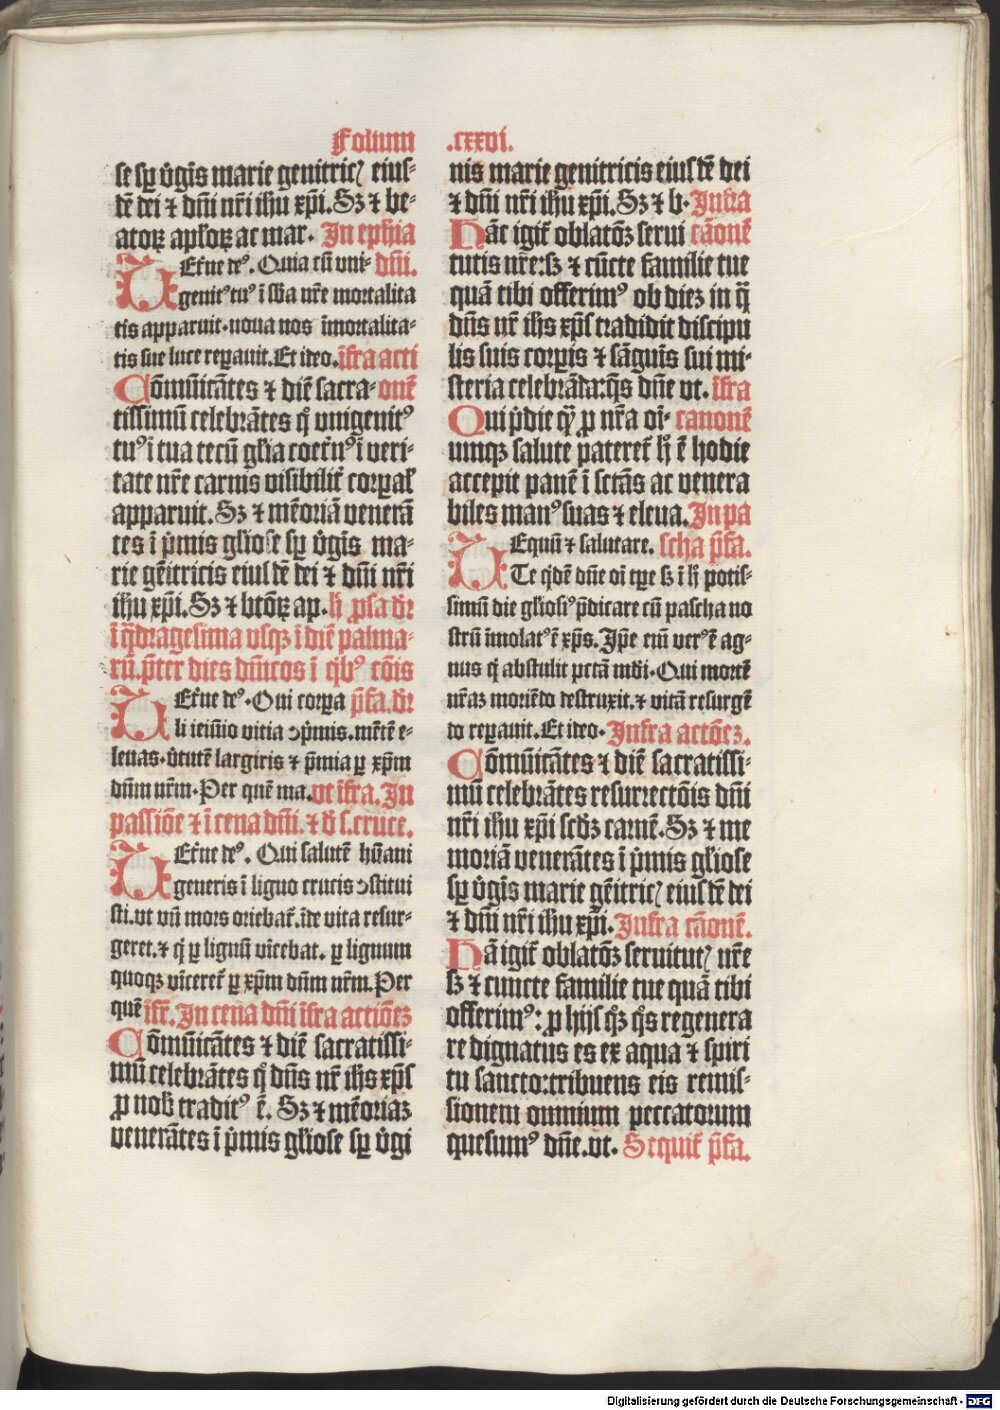 Folium .cxxvi.
se sꝑ v̓gīs marie genitricꝭ eius-
dē dei ⁊ dn̄i nr̄i ih̄u xp̄i. Sꝫ ⁊ be-
atoꝝ apl̓oꝝ ac mar. In ephia
Et̓ne deꝰ. Quia cū vni- dn̄i.
genitꝰ tuꝰ ī sb̄a nr̄e mortalita
tis apparuit. noua nos īmortalita-
tis sue luce reꝑauit. Et ideo. īfra acti
Cōmūicātes ⁊ diē sacra- onē
tissimū celebrātes q̄ vnigenitꝰ
tuꝰ ī tua tecū gl̓ia coet̓nꝰ ī veri-
tate nr̄e carnis visibilit̓ corꝑal̓
apparuit. Sꝫ ⁊ mēoriā venerā
tes ī p̓mis gl̓iose sꝑ v̓gīs ma-
rie gēitricis eiusdē dei ⁊ dn̄i nr̄i
ih̄u xp̄i. Sꝫ ⁊ btōꝝ ap. h̓ p̱fa dr̄
ī q̄dragesima vsqꝫ ī diē palma-
rū. p̄ter dies dn̄icos ī qb̓ꝰ cōis
Et̓ne deꝰ. Qui corꝑa p̄fa. dr̄
li ieiūio vitia ↄp̓mis. mētē e-
leuas. v̓tutē largiris ⁊ p̄mia ꝑ xp̄m
dn̄m nr̄m. Per quē ma. vt īfra. In
passiōe ⁊ ī cena dn̄i. ⁊ d̓ s. cruce.
Et̓ne deꝰ. Qui salutē hūani
generis ī ligno crucis ↄstitui
sti. vt vn̄ mors oriebat̓. īde vita resur-
geret. ⁊ q̓ ꝑ lignū vīcebat. ꝑ lignum
quoqꝫ vīceret̓ ꝑ xp̄m dn̄m nr̄m. Per
quē īfr̄. In cena dn̄i īfra actiōeꝫ
Cōmūicātes ⁊ diē sacratissi-
mū celebrātes q̄ dn̄s nr̄ ih̄s xp̄s
ꝓ nob̓ traditꝰ ē. Sꝫ ⁊ mēoriaꝫ
venerātes ī p̓mis gl̓iose sꝑ v̓gi
nis marie genitricis eiusdē dei
⁊ dn̄i nr̄i ih̄u xp̄i. Sꝫ ⁊ b. Infra
Hāc igit̓ oblatōꝫ serui cāonē
tutis nr̄e: sꝫ ⁊ cūcte familie tue
quā tibi offerimꝰ ob dieꝫ in q̄
dn̄s nr̄ ih̄s xp̄s tradidit discipu
lis suis corꝑis ⁊ sāguīs sui mi-
steria celebrāda: q̄s dn̄e vt. īfra
Qui p̓die qꝫ̄ ꝓ nr̄a oī- canonē
umqꝫ salute pateret̓ h̓ ē hodie
accepit panē ī sctās ac venera
biles manꝰ suas ⁊ eleua. In pa
Equū ⁊ salutare. scha p̄fa.
Te q̓dē dn̄e oī tp̄e sꝫ ī h̓ potis-
simū die gl̓iosiꝰ p̄dicare cū pascha no
strū īmolatꝰ ē xp̄s. Ip̄e em̄ verꝰ ē ag-
nus q̓ abstulit pctā mdi. Qui mortē
nr̄aꝫ moriēdo destruxit. ⁊ vitā resurgē
do reꝑauit. Et ideo. Infra actōeꝫ.
Cōmūicātes ⁊ diē sacratissi-
mū celebrātes resurrectōis dn̄i
nr̄i ih̄u xp̄i scd̓ꝫ carnē. Sꝫ ⁊ me
moriā venerātes ī p̓mis gl̓iose
sꝑ v̓gīs marie gēitricꝭ eiusdē dei
⁊ dn̄i nr̄i ih̄u xp̄i. Infra cāonē.
Hā igit̓ oblatōꝫ seruitutꝭ nr̄e
sꝫ ⁊ cuncte familie tue quā tibi
offerimꝰ: ꝓ hijs q̄ꝫ q̓s regenera
re dignatus es ex aqua ⁊ spiri
tu sancto: tribuens eis remis-
sionem omnium peccatorum
quesumꝰ dn̄e. vt. Sequit̓ p̄fa.
Digitalisierung gefördert durch die Deutsche Forschungsgemeinschaft - DFG